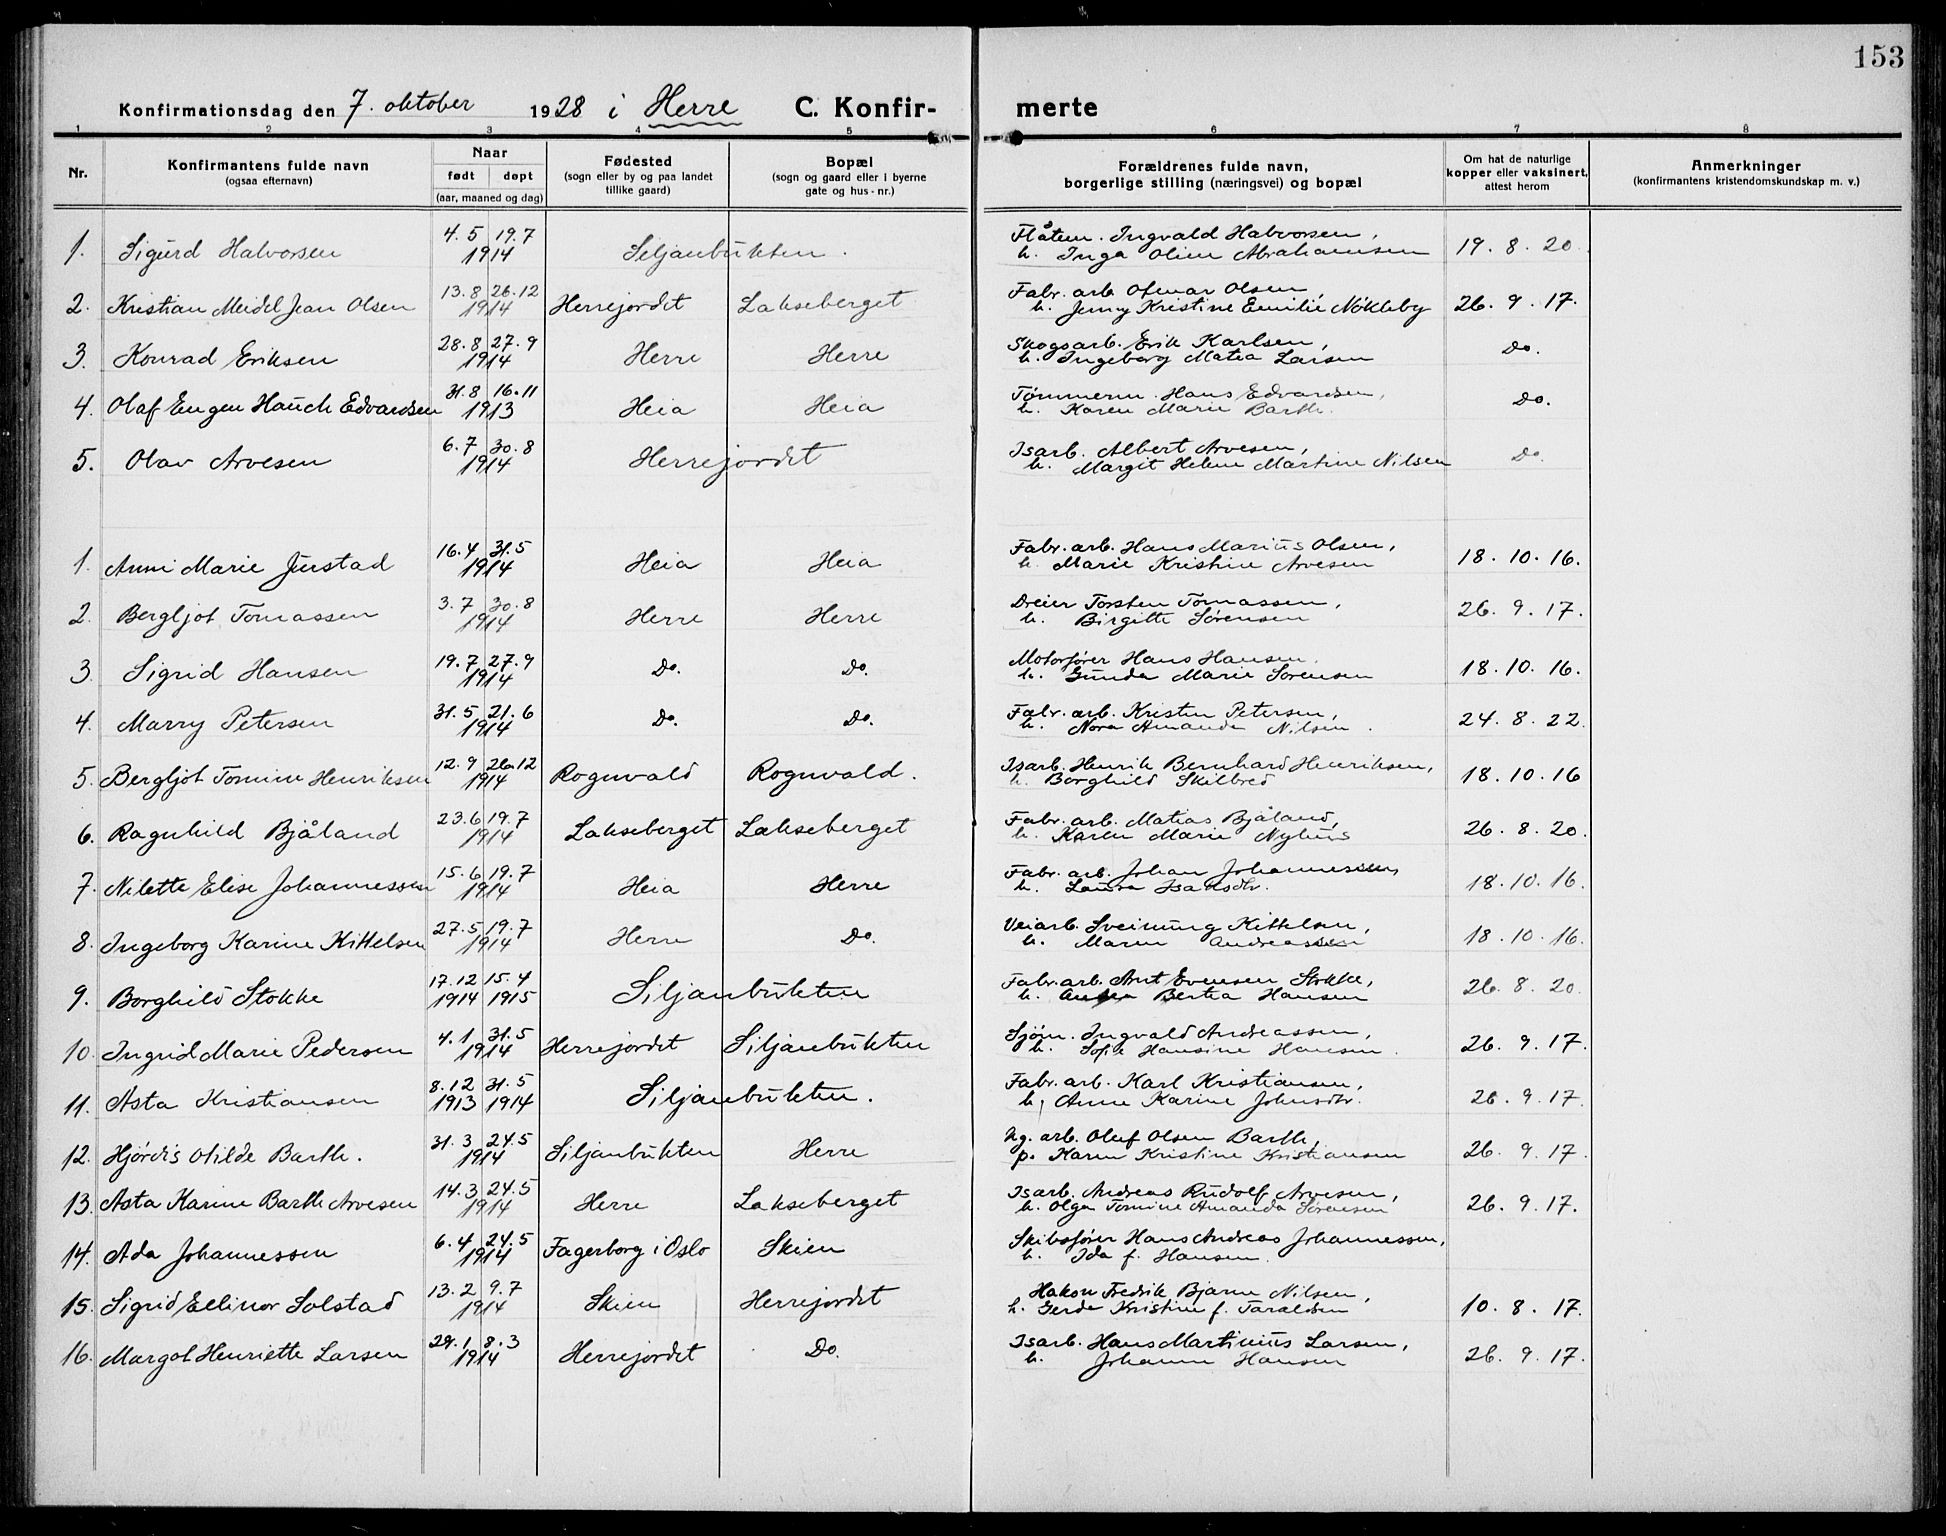 153
Konfirmationsdag den 7. oktober 1928 i Herre C. Konfir- merte
1 2 3 4 5 6 7 8
Nr. Konfirmantens fulde navn (ogsaa efternavn) Naar født døpt (aar, maaned og dag) Fødested (sogn eller by og paa landet tillike gaard) Bopæl (sogn og gaard eller i byerne gate og hus-nr.) Forældrenes fulde navn, borgerlige stilling (næringsvei) og bopæl Om hat de naturlige kopper eller vaksinert, attest herom Anmerkninger (konfirmantens kristendomskundskap m. v.)
1. Sigurd Halvorsen 4.5 19.7 1914 Siljanbukten. Flåtem. Ingvald Halvorsen, h. Inga Oline Abrahamsen 19.8.20.
2. Kristian Meidel Jean Olsen 13.8 26.12 1914 Herrejordet Lakseberget Fabr. arb. Ofmar Olsen, h. Jenny Kristine Emilie Nökleby 26.9.17.
3. Konrad Eriksen 28.8 27.9 1914 Herre Herre Skogsarb. Erik Karlsen, h. Ingeborg Matea Larsen Do.
4. Olaf Eugen Hauch Edvardsen 31.8 16.11 1913 Heia Heia Tømmerm. Hans Edvardsen, h. Karen Marie Barth. Do.
5. Olav Arvesen 6.7 30.8 1914 Herrejordet Isarb. Albert Arvesen, h. Margit Helene Martine Nilsen Do.
1. Anni Marie Jerstad 16.4 31.5 1914 Heia Heia Fabr. arb. Hans Marius Olsen, h. Marie Kristine Arvesen 18.10.16.
2. Bergljot Tomassen 3.7 30.8 1914 Herre Herre Dreier Torsten Tomassen, h. Birgitte Sørensen 26.9.17.
3. Sigrid Hansen 19.7 27.9 1914 Do. Do. Motorfører Hans Hansen, h. Gunda Marie Sørensen 18.10.16.
4. Marry Petersen 31.5 21.6 1914 Do. Do. Fabr. arb. Kristen Petersen, h. Nora Amanda Nilsen. 24.8.22.
5. Bergljot Tomine Henriksen 12.9 26.12 1914 Rognvald Rognvald. Isarb. Henrik Bernhard Henriksen, h. Borghild Skilbred 18.10.16
6. Ragnhild Bjåland 23.6 19.7 1914 Lakseberget Lakseberget Fabr. arb. Matias Bjåland, h. Karen Marie Nyhus 26.8.20.
7. Nilette Elise Johannessen 15.6 19.7 1914 Heia Herre Fabr. arb. Johan Johannessen, h. Laura Isaksdtr. 18.10.16.
8. Ingeborg Karine Kittelsen 27.5 19.7 1914 Herre Do. Veiarb. Sveinung Kittelsen, h. Maren Andreassen 18.10.16.
9. Borghild Stokke 17.12 1914 15.4 1915 Siljanbukten Fabr. arb. Arnt Evensen Stokke, h. Bertea Hansen 26.8.20.
10. Ingrid Marie Pedersen 4.1 31.5 1914 Herrejordet Siljanbukten Sjøm. Ingvald Andreassen, h. Sofie Hansine Hansen. 26.9.17.
11. Asta Kristiansen 8.12 1913 31.5 1914 Siljanbukten. Fabr. arb. Karl Kristiansen, h. Anne Karine Johnsdtr. 26.9.17.
12. Hjørdis Otilde Barth. 31.3 24.5 1914 Siljanbukten Herre Ug. arb. Oluf Olsen Barth, p. Karen Kristine Kristiansen 26.9.17.
13. Asta Karine Barth Arvesen 14.3 24.5 1914 Herre Lakseberget Isarb. Andreas Rudolf Arvesen, h. Olga Tomine Amanda Sørensen 26.9.17.
14. Ada Johannessen 6.4 24.5 1914 Fagerborg i Oslo Skien Skibsfører Hans Andreas Johannessen, h. Ida f. Hansen.
15. Sigrid Ellinor Solstad 13.2 9.7 1914 Skien Herrejordet Hakon Fredrik Bjarne Nilsen, h. Gerda Kristine f. Taraldsen 10.8.17.
16. Margot Henriette Larsen 29.1 8.3 1914 Herrejordet Do. Isarb. Hans Martinius Larsen, h. Johanne Hansen 26.9.17.